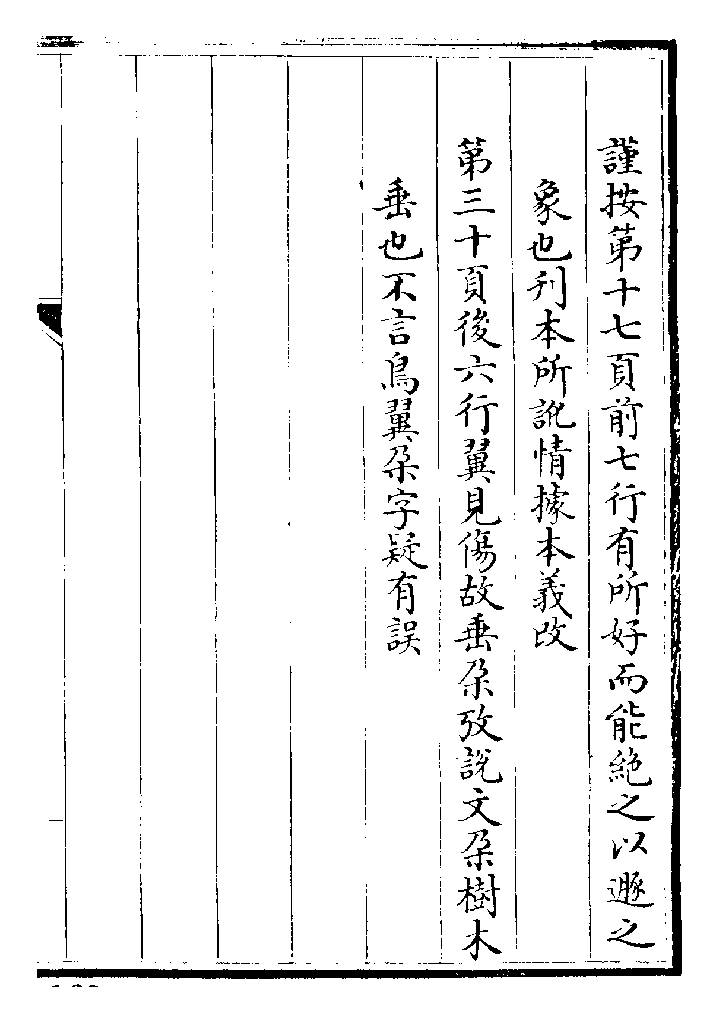 謹按第十七頁前七行有所好而能絶之以遯之
象也刋本所訛情據本義改
第三十頁後六行翼見傷故垂朶攷說文朶樹木
垂也不言鳥翼朶字疑有誤